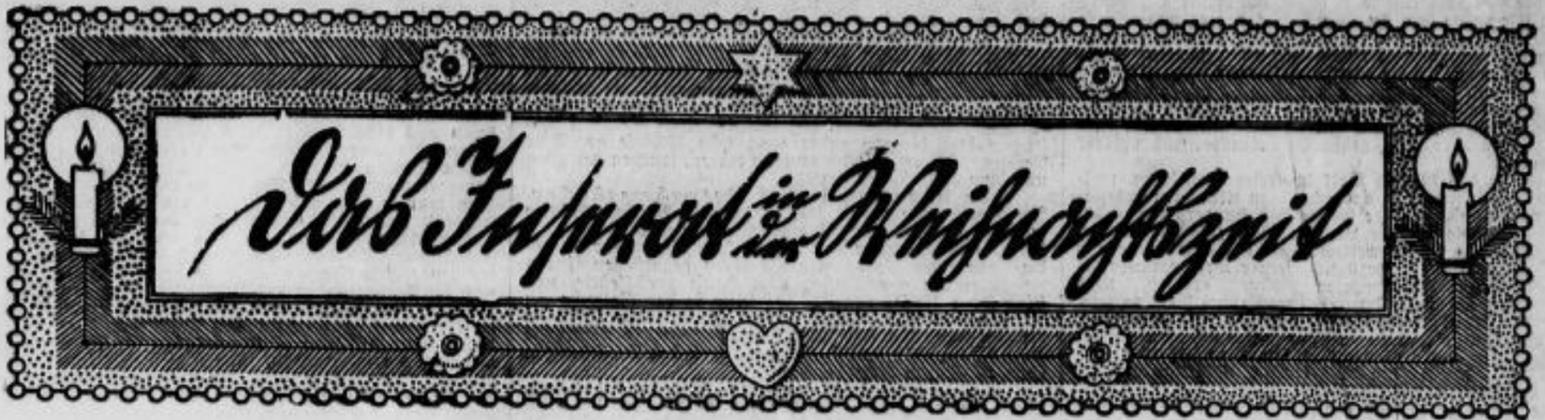 Das Inserat in der Weihnachtszeit